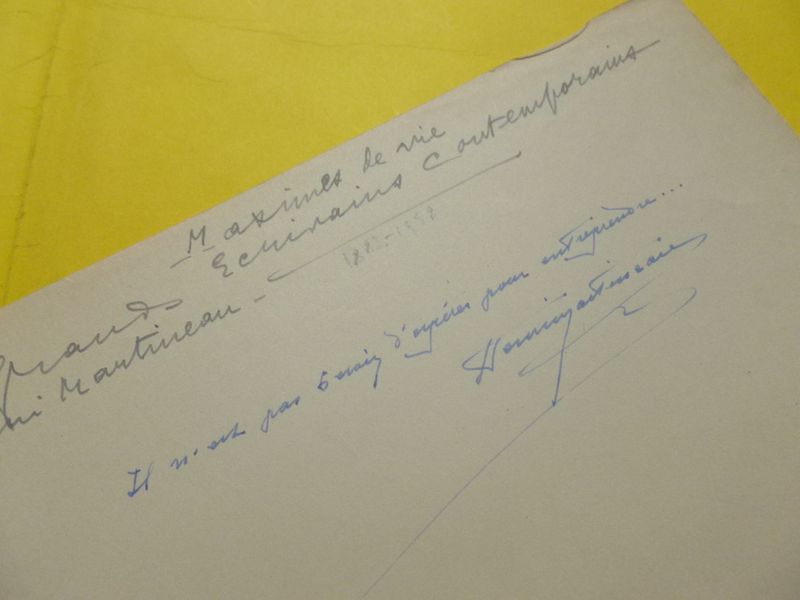 Maximes de vie
Grands Ecrivains Contemporains
ri Martineau -
1882-1958
Il n'est pas besoin d'espérer pour entreprendre...
Henri Martineau